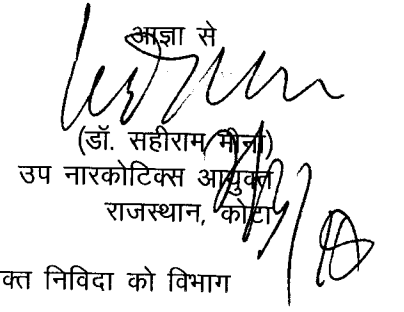 आज्ञा से
(डॉ. सहीराम मीना)
उप नारकोटिक्स आयुक्त
राजस्थान, कोटा
क्त निविदा को विभाग